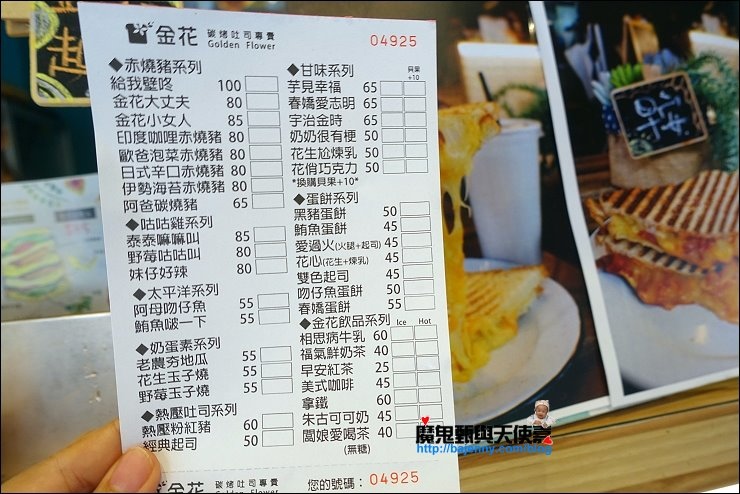 金花 碳烤吐司專賣
Golden Flower
04925
◆赤燒豬系列
給我壁咚 100
金花大丈夫 80
金花小女人 85
印度咖哩赤燒豬 80
歐爸泡菜赤燒豬 80
日式辛口赤燒豬 80
伊勢海苔赤燒豬 80
阿爸碳燒豬 65
◆咕咕雞系列
泰泰嘛嘛叫 85
野莓咕咕叫 80
妹仔好辣 80
◆太平洋系列
阿母吻仔魚 55
鮪魚啵一下 55
◆奶蛋素系列
老農夯地瓜 55
花生玉子燒 55
野莓玉子燒 55
◆熱壓吐司系列
熱壓粉紅豬 60
經典起司 50
◆甘味系列 貝果+10
芋見幸福 65
春嬌愛志明 65
宇治金時 65
奶奶很有梗 50
花生尬煉乳 50
花俏巧克力 50
*換購貝果+10*
◆蛋餅系列
黑豬蛋餅 50
鮪魚蛋餅 45
愛過火(火腿+起司) 45
花心(花生+煉乳) 45
雙色起司 45
吻仔魚蛋餅 50
春嬌蛋餅 55
◆金花飲品系列 Ice Hot
相思病牛乳 40
福氣鮮奶茶 60
早安紅茶 25
美式咖啡 45
拿鐵 60
朱古可可奶 45
闆娘愛喝茶 40
(無糖)
金花 碳烤吐司專賣
Golden Flower
您的號碼：04925
魔鬼甄與天使嘉